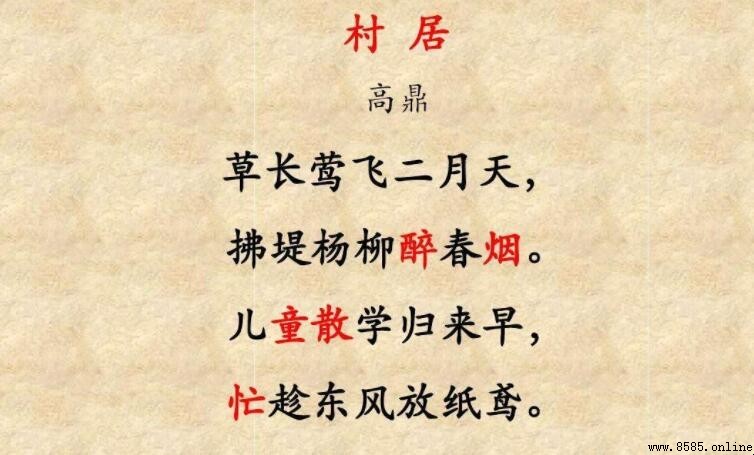 村 居
高鼎
草长莺飞二月天，
拂堤杨柳醉春烟。
儿童散学归来早，
忙趁东风放纸鸢。
www.8585.online